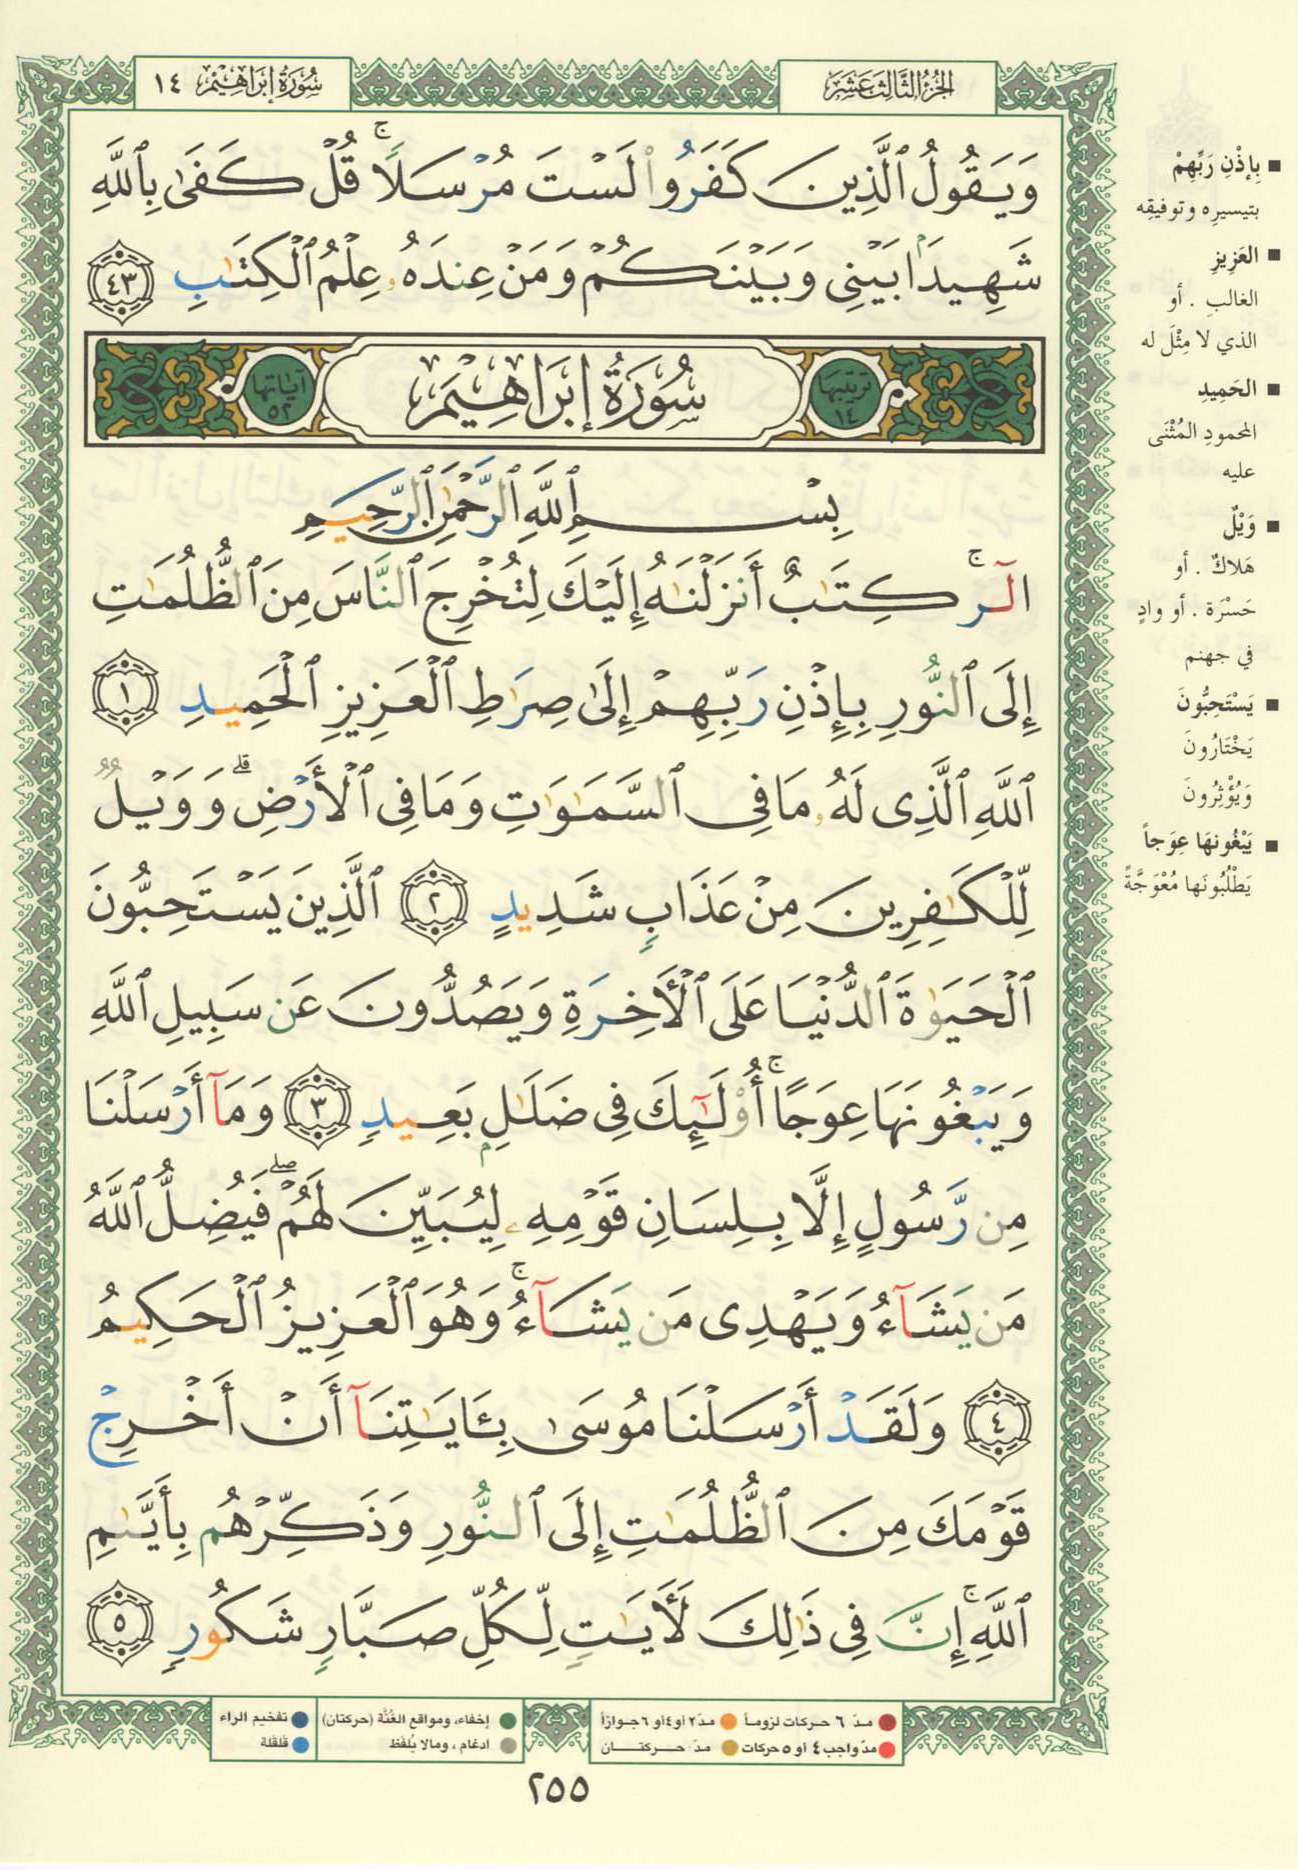 الجُزْءُ الثَّالِثَ عَشَرَ
سُورَةُ إِبْرَاهِيمَ ١٤
وَيَقُولُ ٱلَّذِينَ كَفَرُوا۟ لَسْتَ مُرْسَلًا ۚ قُلْ كَفَىٰ بِٱللَّهِ
شَهِيدًۢا بَيْنِى وَبَيْنَكُمْ وَمَنْ عِندَهُۥ عِلْمُ ٱلْكِتَـٰبِ ٤٣
ترتيبها ١٤ سُورَةُ إِبْرَاهِيمَ آياتها ٥٢
بِسْمِ ٱللَّهِ ٱلرَّحْمَـٰنِ ٱلرَّحِيمِ
الٓر ۚ كِتَـٰبٌ أَنزَلْنَـٰهُ إِلَيْكَ لِتُخْرِجَ ٱلنَّاسَ مِنَ ٱلظُّلُمَـٰتِ
إِلَى ٱلنُّورِ بِإِذْنِ رَبِّهِمْ إِلَىٰ صِرَٰطِ ٱلْعَزِيزِ ٱلْحَمِيدِ ١
ٱللَّهِ ٱلَّذِى لَهُۥ مَا فِى ٱلسَّمَـٰوَٰتِ وَمَا فِى ٱلْأَرْضِ ۗ وَوَيْلٌ
لِّلْكَـٰفِرِينَ مِنْ عَذَابٍ شَدِيدٍ ٢ ٱلَّذِينَ يَسْتَحِبُّونَ
ٱلْحَيَوٰةَ ٱلدُّنْيَا عَلَى ٱلْأَخِرَةِ وَيَصُدُّونَ عَن سَبِيلِ ٱللَّهِ
وَيَبْغُونَهَا عِوَجًا ۚ أُو۟لَـٰٓئِكَ فِى ضَلَـٰلٍۭ بَعِيدٍ ٣ وَمَآ أَرْسَلْنَا
مِن رَّسُولٍ إِلَّا بِلِسَانِ قَوْمِهِۦ لِيُبَيِّنَ لَهُمْ ۖ فَيُضِلُّ ٱللَّهُ
مَن يَشَآءُ وَيَهْدِى مَن يَشَآءُ ۚ وَهُوَ ٱلْعَزِيزُ ٱلْحَكِيمُ
٤ وَلَقَدْ أَرْسَلْنَا مُوسَىٰ بِـَٔايَـٰتِنَآ أَنْ أَخْرِجْ
قَوْمَكَ مِنَ ٱلظُّلُمَـٰتِ إِلَى ٱلنُّورِ وَذَكِّرْهُم بِأَيَّىٰمِ
ٱللَّهِ ۚ إِنَّ فِى ذَٰلِكَ لَأَيَـٰتٍ لِّكُلِّ صَبَّارٍ شَكُورٍ ٥
■ بِإذْنِ رَبِّهِمْ
بتيسيرِه وتوفيقِه
■ العَزِيزِ
الغالبِ . أو
الذي لا مِثْلَ له
■ الحَمِيدِ
المحمودِ المُثْنَى
عليه
■ وَيْلٌ
هَلاكٌ . أو
حَسْرَة . أو وادٍ
في جهنم
■ يَسْتَحِبُّونَ
يَخْتَارُونَ
وَيُؤْثِرُونَ
■ يَبْغُونَهَا عِوَجاً
يَطْلُبُونَها مُعْوَجَّةً
مدّ ٦ حركات لزوماً
مدّ ٢ أو ٤ أو ٦ جوازاً
مدّ واجب ٤ أو ٥ حركات
مدّ حركتان
إخفاء، ومواقع الغُنَّة (حركتان)
ادغام ، ومالا يُلفَظ
تفخيم الراء
قلقلة
٢٥٥